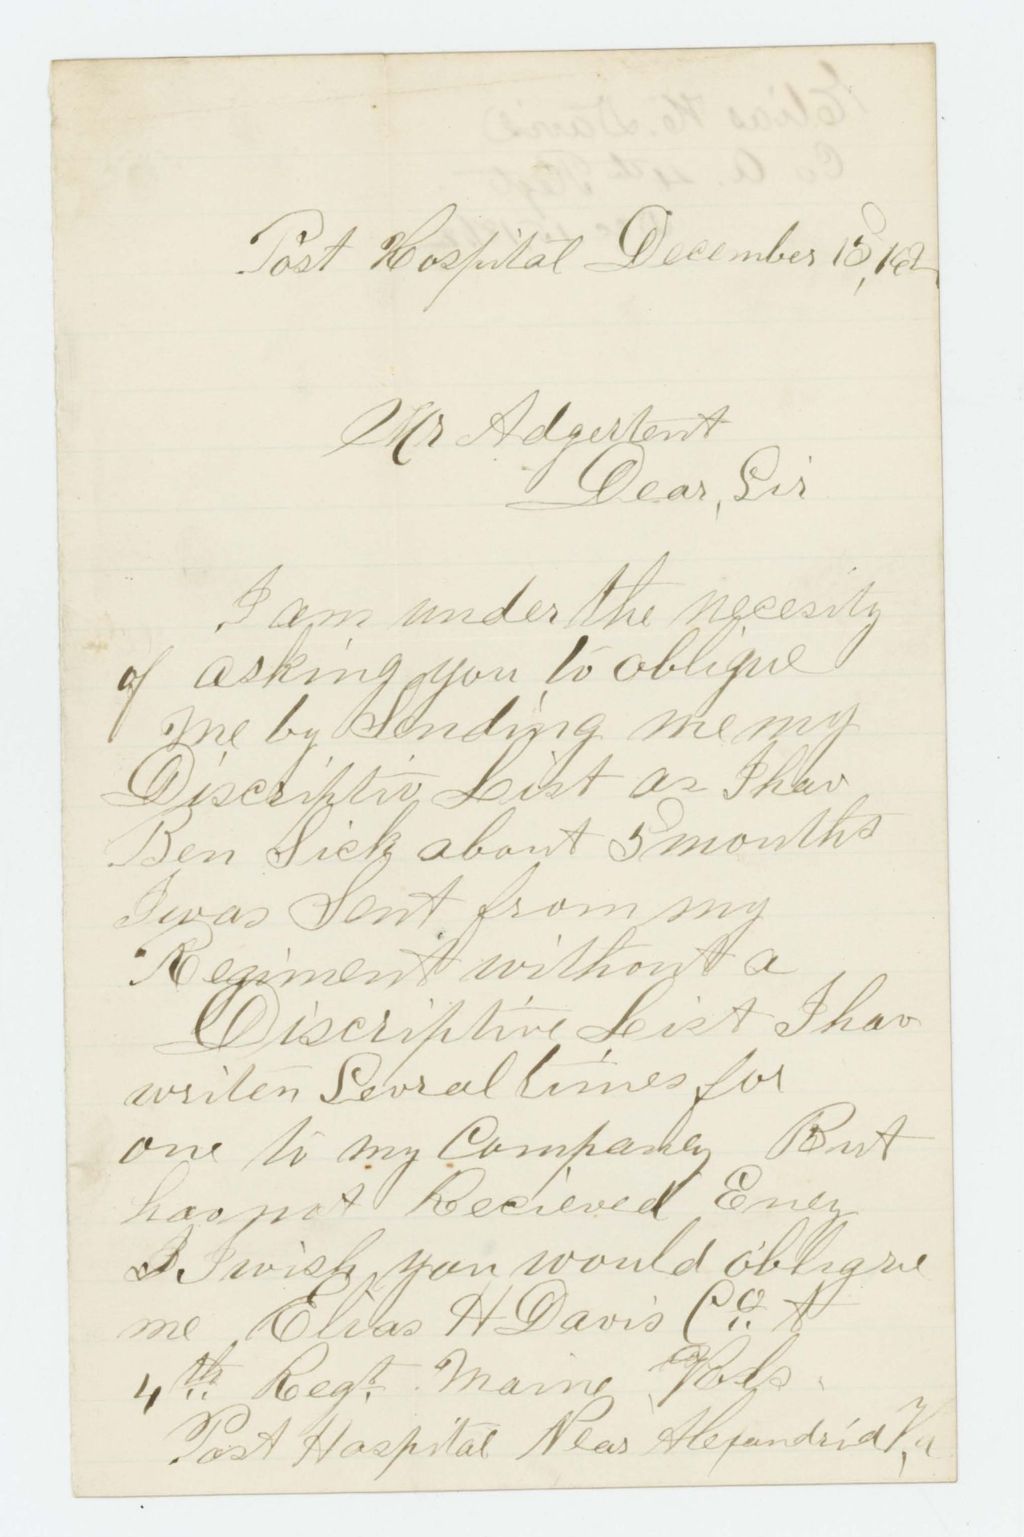 Post Hospital December 15, 1862
Mr Adgertent
Dear, Sir
I am under the necesity
of asking you to oblique
me by Sending me my
Discriptiv List as I hav
Ben Sick about 5 months
I was Sent from my
Regiment without a
Discriptive List I hav
writen Sevral times for
one to my Company But
has not Recieved Eney
I I wish you would oblique
me Elias H Davis Co. A
4th Regt. Maine Vols.
Post Hospital Near Alexandria Va